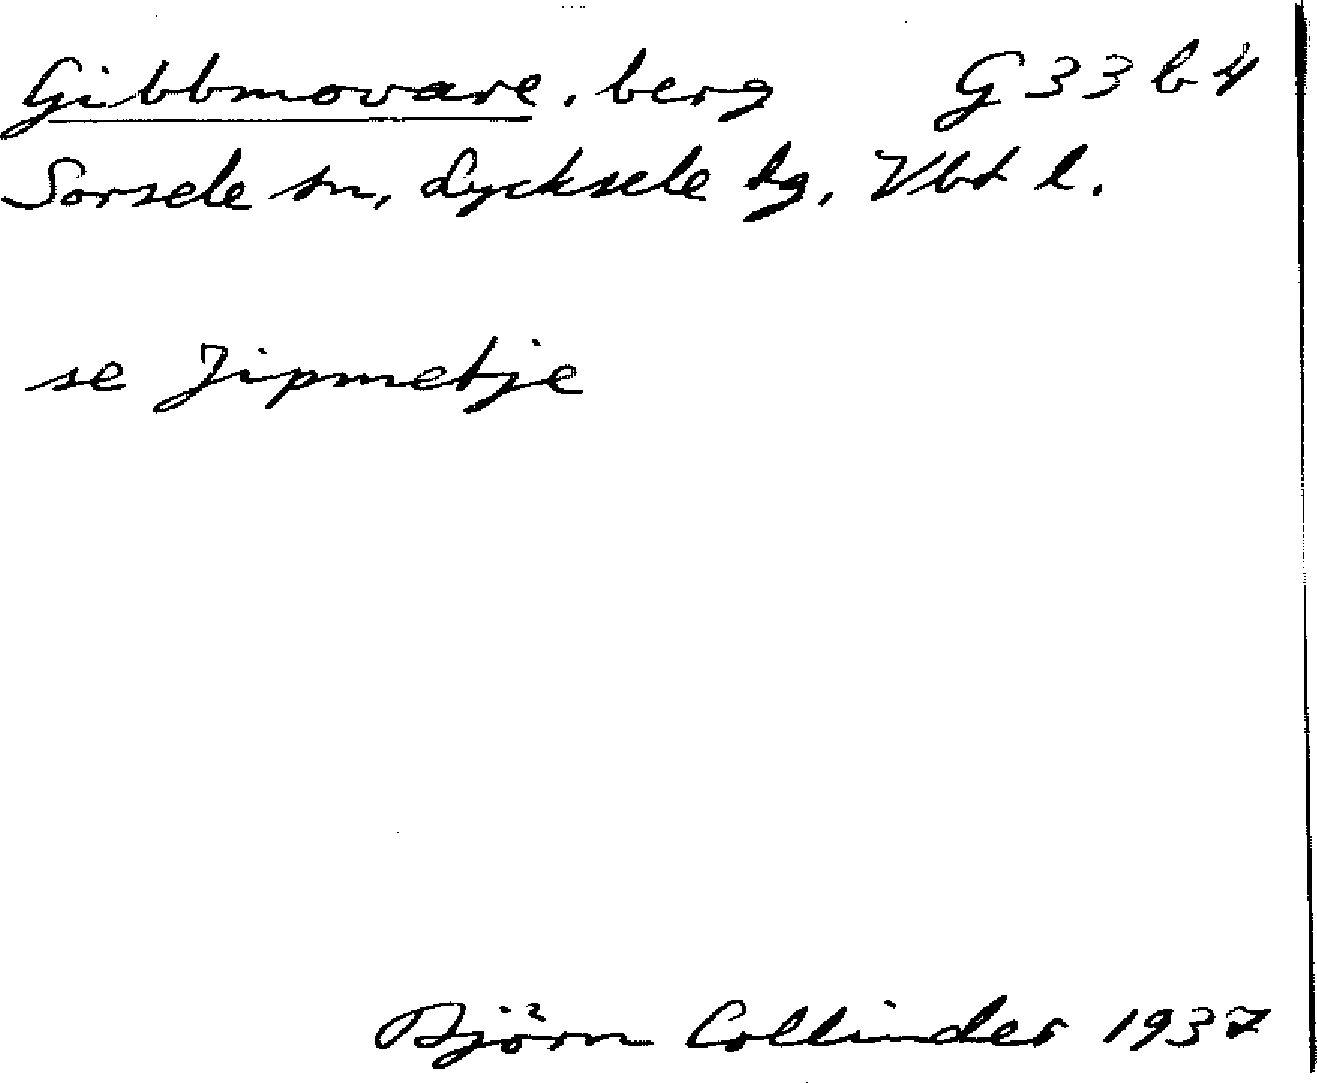 Gibbmovare, berg G 33 b 4
Sorsele sn, Lycksele lg, Vbt l.
se Jipmetje
Björn Collinder 1937